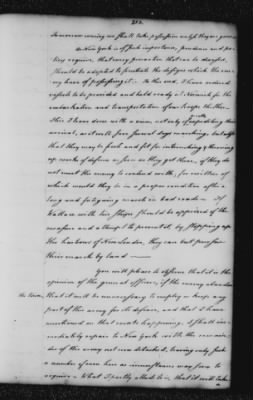 tomorrow evening we shall take possession unless they
New York is of such importance, prudence and po-
licy require, that every precaution that can be devised,
should be adopted to frustrate the designs which the ene-
my have of possessing it. To this end, I have ordered
vessels to be provided and held ready at Norwich for the
embarkation and transportation of our Troops thither.
This I have done with a view, not only of expediting their
arrival, as it will save several days marching, but also
that they may be fresh and fit for intrenching & throwing
up works of defence as soon as they get there, if they do
not meet the enemy to contend with, for neither of
which would they be in a proper condition after a
long and fatiguing march in bad roads. If
Wallace with his Ships should be apprized of the
measure and attempt to prevent it, by stopping up
the harbour of New London, they can but pursue
their march by land
You will please to observe that it is the
opinion of the general officers, if the enemy abandon
the town,
that it will be unnecessary to employ or keep any
part of this army for its defence, and that I have
mentioned on that event's happening. I shall im-
mediately repair to New York with the remain-
der of the army not now detached, leaving only such
a number of men here as circumstances may seem to
require. What I partly alluded to is, that it will take